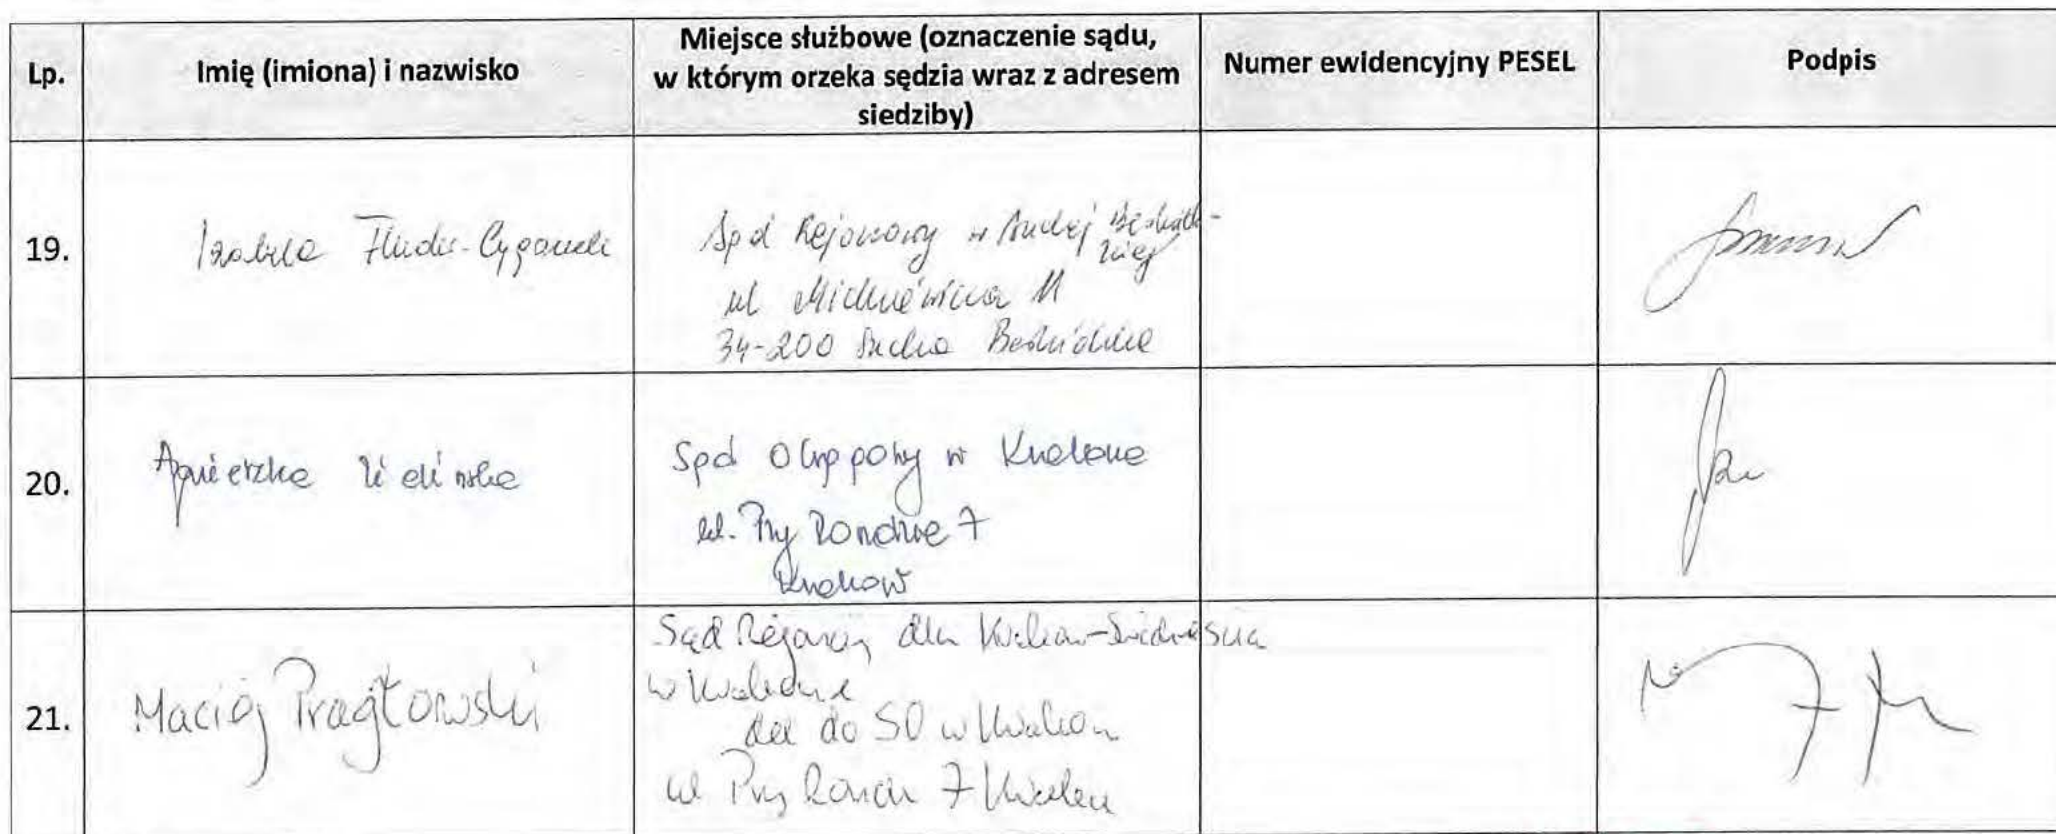 Lp.
Imię (imiona) i nazwisko
Miejsce służbowe (oznaczenie sądu,
w którym orzeka sędzia wraz z adresem
siedziby)
Numer ewidencyjny PESEL
Podpis
19.
Izabela
Sąd Rejonowy w Suchej Beskidz-
kiej
ul Mickiewicza 11
34-200 Sucha Beskidzka
20.
Agnieszka
Sąd Okręgowy w Krakowie
ul. Przy Rondzie 7
Kraków
21.
Maciej Pragłowski
Sąd Rejonowy dla Krakowa-Śródmieścia
w Krakowie
del do SO w Krakow
ul Przy Rondzie 7 Kraków